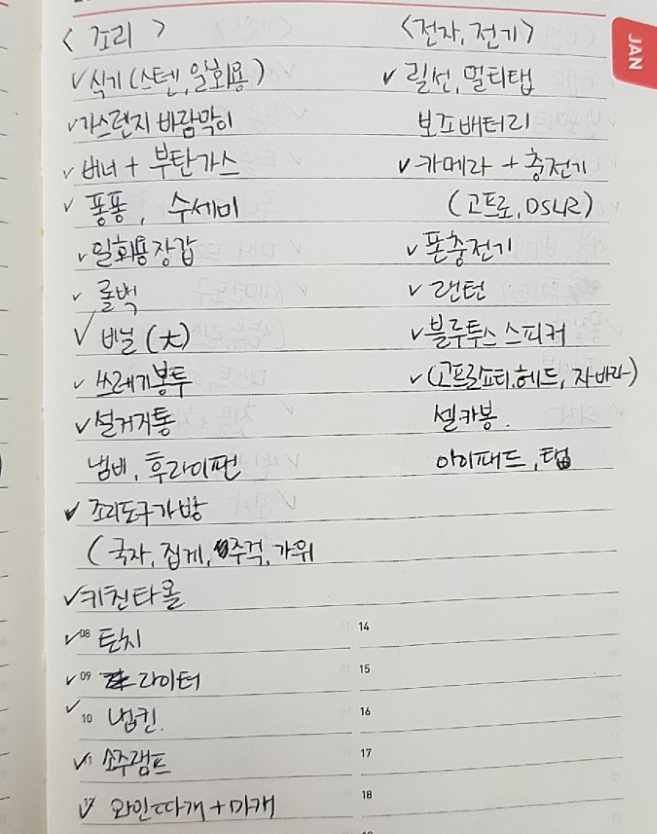 <조리>
✓ 식기 (스텐, 일회용)
✓ 가스렌지 바람막이
✓ 버너 + 부탄가스
✓ 퐁퐁, 수세미
✓ 일회용장갑
✓ 롤백
✓ 비닐 (大)
✓ 쓰레기봉투
✓ 설거지통
냄비, 후라이팬
✓ 조리도구가방
(국자, 집게, 주걱, 가위
✓ 키친타올
✓ 08 토치
✓ 09 라이터
✓ 10 냅킨.
✓ 11 소주램프
✓ 12 와인따개 + 마개
<전자, 전기>
✓ 릴선, 멀티탭
보조배터리
✓ 카메라 + 충전기
(고프로, DSLR)
✓ 폰충전기
✓ 랜턴
✓ 블루투스 스피커
✓ (고프로쇼티, 헤드, 자바라)
셀카봉.
아이패드, 탭
14
15
16
17
18
JAN